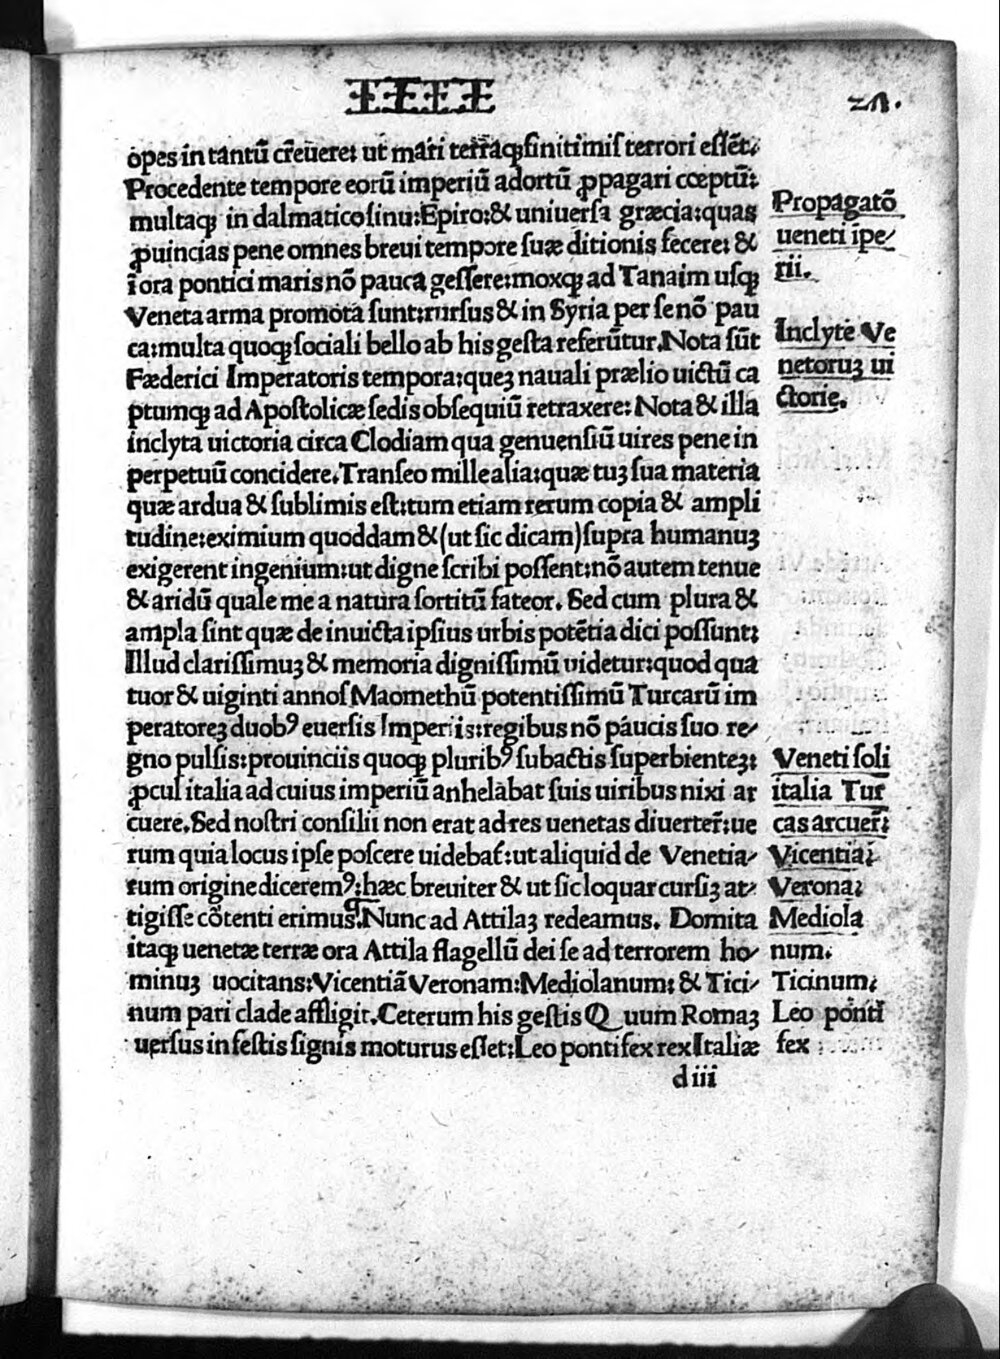 opes in tantū creuere: ut mari terraqꝫ finitimis terrori essēt.
Procedente tempore eorū imperiū adortū ꝓpagari cœptū:
multaqꝫ in dalmatico sinu: Epiro: & uniuersa græcia: quas
ꝓuincias pene omnes breui tempore suæ ditionis fecere: &
ī ora pontici maris nō pauca gessere: moxqꝫ ad Tanaim usqꝫ
Veneta arma promota sunt: rursus & in Syria per se nō pau
ca: multa quoqꝫ sociali bello ab his gesta referūtur. Nota sūt
Fæderici Imperatoris tempora: queꝫ nauali prælio uictū ca
ptumqꝫ ad Apostolicæ sedis obsequiū retraxere: Nota & illa
inclyta uictoria circa Clodiam qua genuensiū uires pene in
perpetuū concidere. Transeo mille alia: quæ tuꝫ sua materia
quæ ardua & sublimis est: tum etiam rerum copia & ampli
tudine: eximium quoddam & (ut sic dicam) supra humanuꝫ
exigerent ingenium: ut digne scribi possent: nō autem tenue
& aridū quale me a natura sortitū fateor. Sed cum plura &
ampla sint quæ de inuicta ipsius urbis potētia dici possunt:
Illud clarissimuꝫ & memoria dignissimū uidetur: quod qua
tuor & uiginti annos Maomethū potentissimū Turcarū im
peratoreꝫ duobꝰ euersis Imperiis: regibus nō paucis suo re-
gno pulsis: prouinciis quoqꝫ pluribꝰ subactis superbienteꝫ:
ꝓcul italia ad cuius imperiū anhelabat suis uiribus nixi ar
cuere. Sed nostri consilii non erat ad res uenetas diuerter̄: ue
rum quia locus ipse poscere uidebat̄: ut aliquid de Venetia-
rum origine diceremꝰ: hæc breuiter & ut sic loquar cursiꝫ at-
tigisse cōtenti erimus. Nunc ad Attilaꝫ redeamus. Domita
itaqꝫ uenetæ terræ ora Attila flagellū dei se ad terrorem ho-
minuꝫ uocitans: Vicentiā Veronam: Mediolanum: & Tici-
num pari clade affligit. Ceterum his gestis Quum Romaꝫ
uersus infestis signis moturus esset: Leo pontifex rex Italiæ
d iii
Propagatō
ueneti īpe-
rii.
Inclyte Ve
netoruꝫ ui
ctorie.
Veneti soli
italia Tur
cas arcuer̄:
Vicentia:
Verona:
Mediola
num.
Ticinum:
Leo ponti
fex